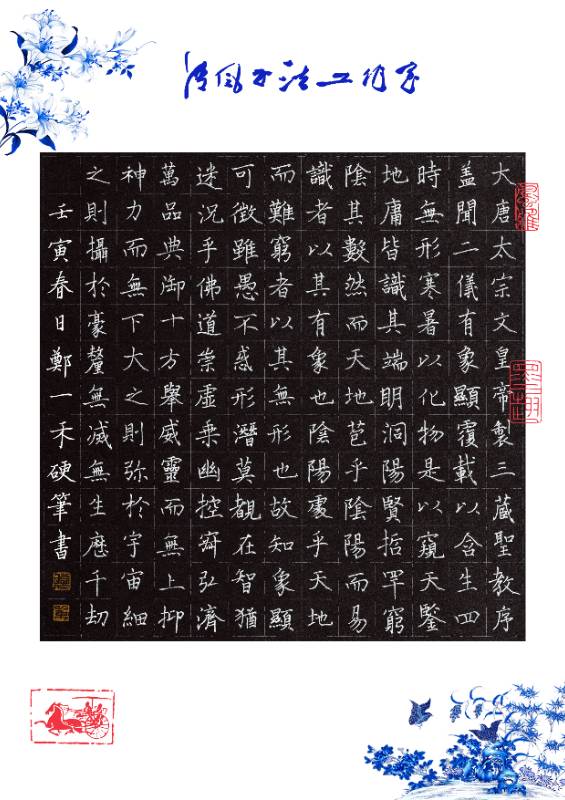 大唐太宗文皇帝製三藏聖教序
盖聞二儀有象顯覆載以含生四
時無形寒暑以化物是以窺天鑒
地庸皆識其端明洞陽賢哲罕窮
陰其數然而天地苞乎陰陽而易
識者以其有象也陰陽處乎天地
而難窮者以其無形也故知象顯
可徵雖愚不惑形潛莫覩在智猶
迷況乎佛道崇虛乘幽控寂弘濟
萬品典御十方舉威靈而無上抑
神力而無下大之則弥於宇宙細
之則攝於豪釐無滅無生歷千劫
壬寅春日鄭一禾硬筆書